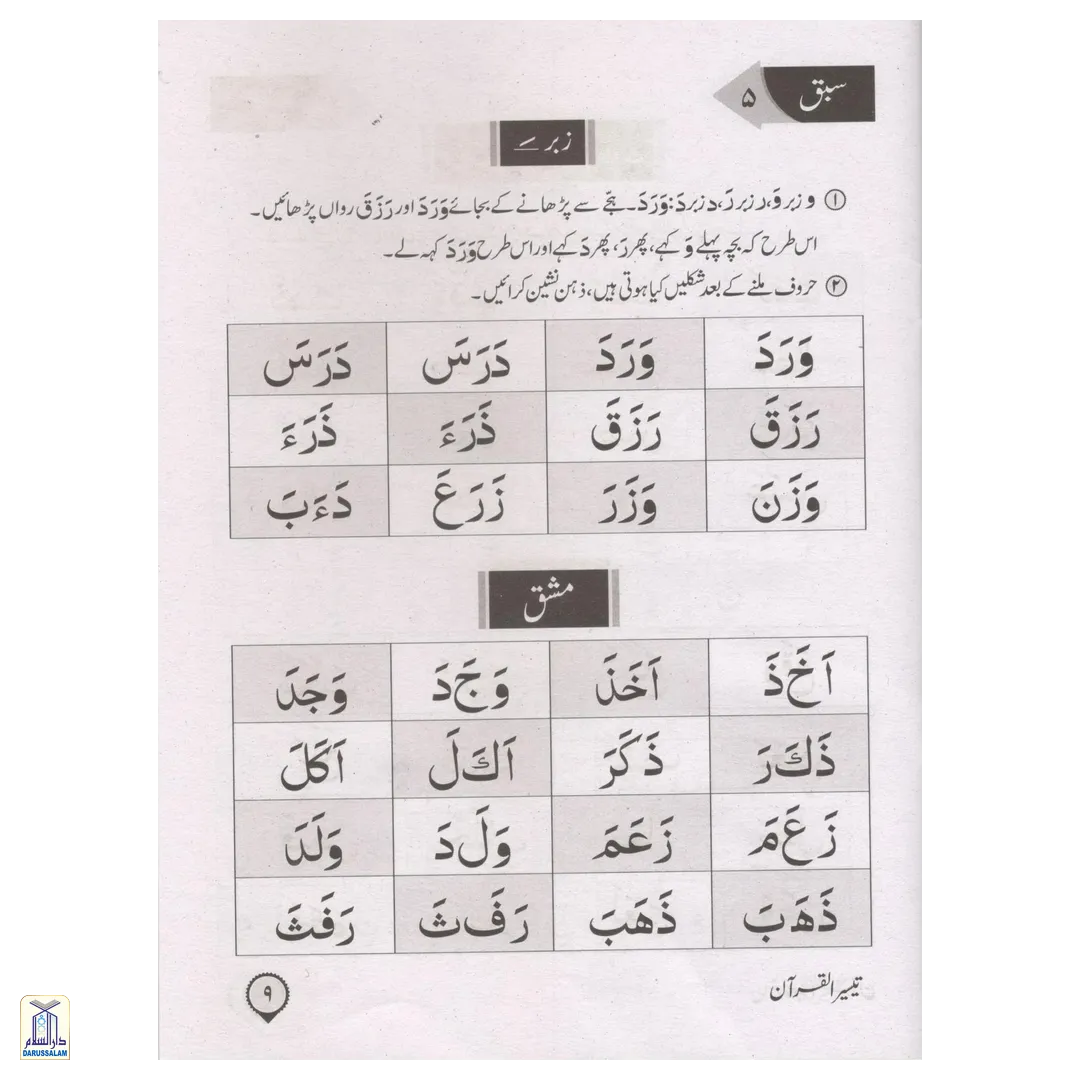 سبق ۵
زبر ـَ
① و زبر وَ، ر زبر رَ، د زبر دَ: وَرَدَ۔ ہجّے سے پڑھانے کے بجائے وَرَدَ اور رَزَقَ رواں پڑھائیں۔
اس طرح کہ بچہ پہلے وَ کہے، پھر رَ، پھر دَ کہے اور اس طرح وَرَدَ کہہ لے۔
② حروف ملنے کے بعد شکلیں کیا ہوتی ہیں، ذہن نشین کرائیں۔
وَرَدَ وَرَدَ دَرَسَ دَرَسَ
رَزَقَ رَزَقَ ذَرَءَ ذَرَءَ
وَزَنَ وَزَرَ زَرَعَ دَءَبَ
مشق
اَ خَ ذَ اَخَذَ وَ جَ دَ وَجَدَ
ذَ كَ رَ ذَكَرَ اَ كَ لَ اَكَلَ
زَ عَ مَ زَعَمَ وَ لَ دَ وَلَدَ
ذَ هَ بَ ذَهَبَ رَ فَ ثَ رَفَثَ
تیسیر القرآن
۹
دار السلام
DARUSSALAM